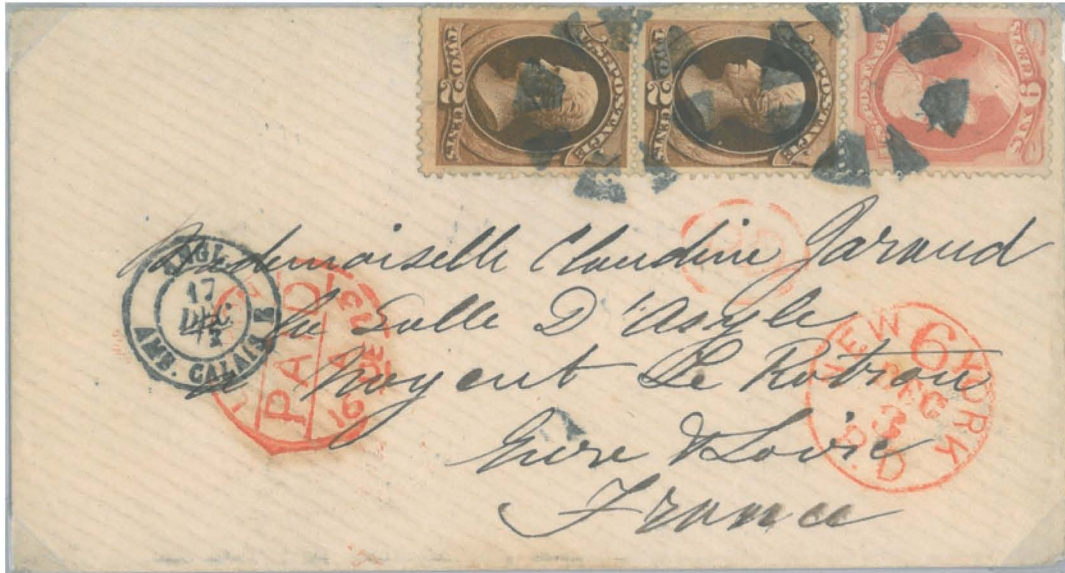 TWO 2 CENTS
U.S. POSTAGE
TWO 2 CENTS
U.S. POSTAGE
SIX 6 CENTS
U.S. POSTAGE
Mademoiselle Claudine Garaud
la Salle D'Asyle
a Nogent Le Rotrou
Eure & Loire
France
ANGL.
17
DEC
AMB. CALAIS
PAID
16
PD
NEW YORK
6
DEC
3
P.D